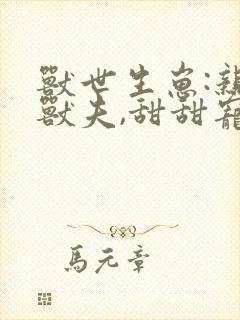 獸世生崽:親
獸夫,甜甜寵
馬元章